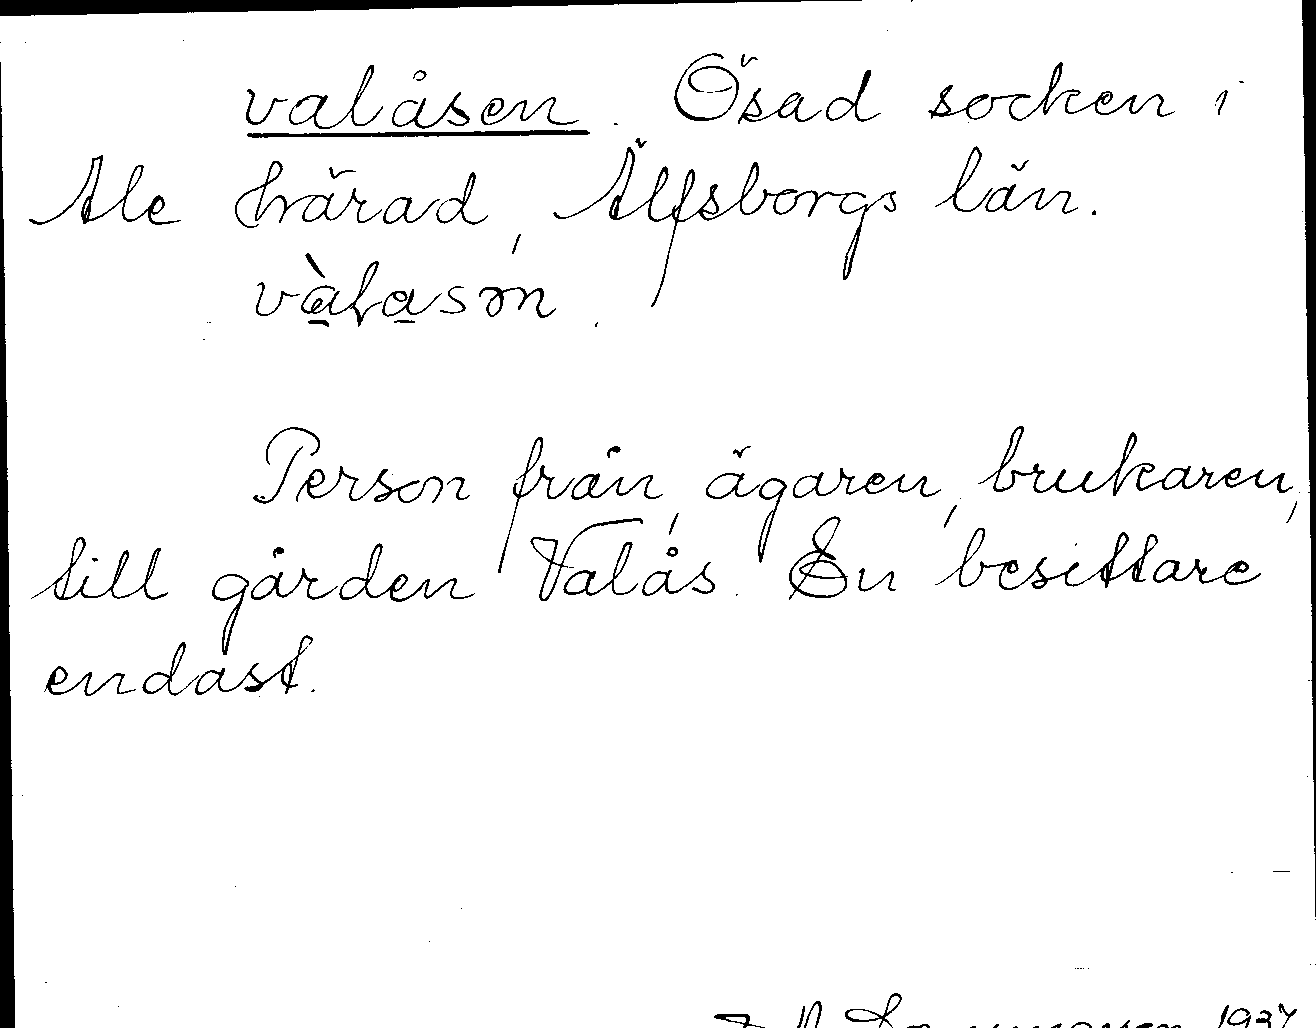 valåsen. Ösad socken i
Ale härad, Älfsborgs län.
vàlasən.
Person från, ägaren, brukaren,
till gården Valås. En besittare
endast.
1937